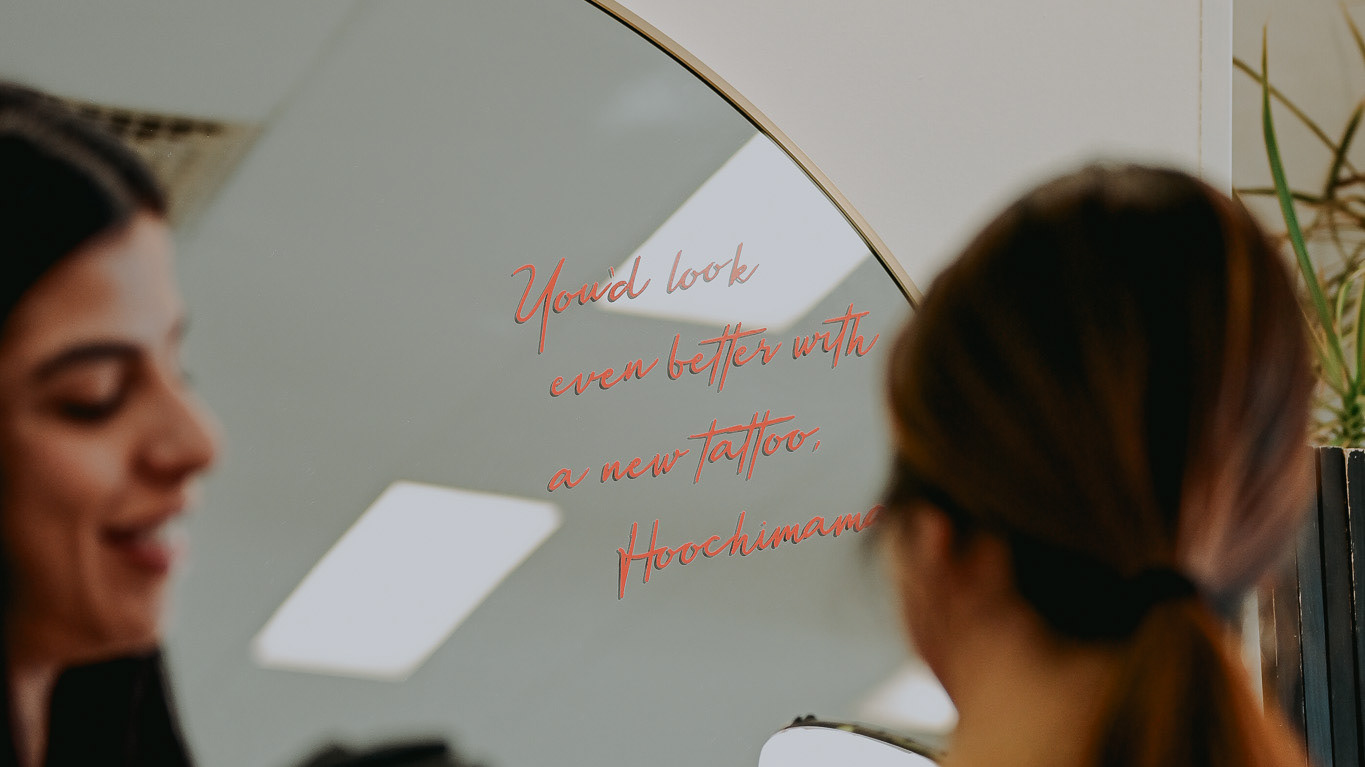 You'd look
even better with
a new tattoo,
Hoochimama